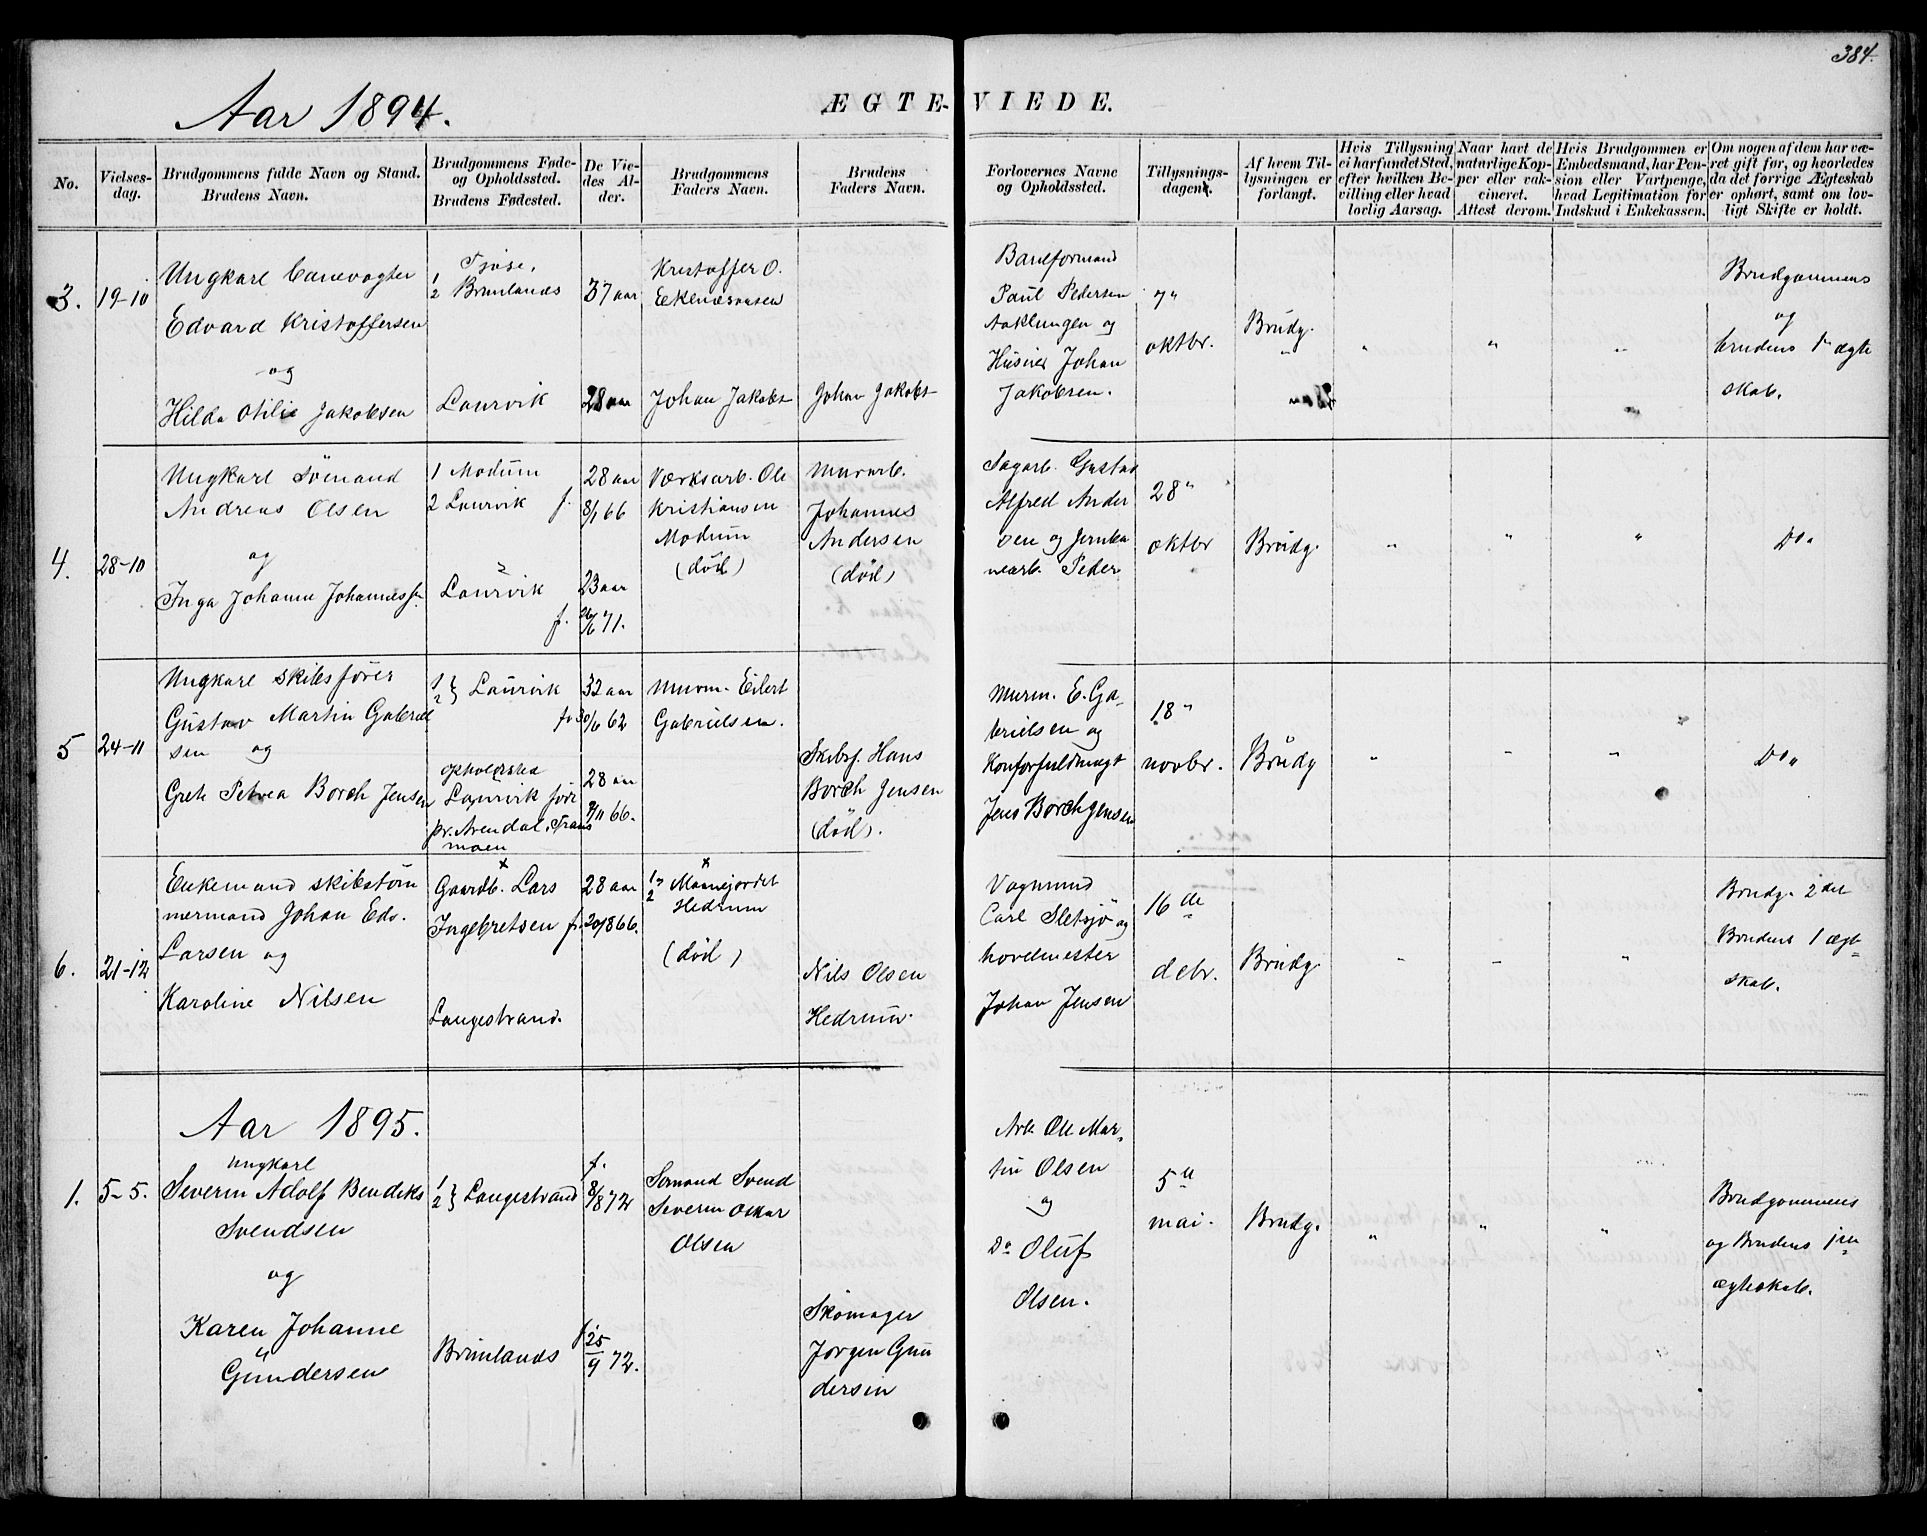 384.
Aar 1894.
ÆGTE-VIEDE.
No.
Vielses-
dag.
Brudgommens fulde Navn og Stand.
Brudens Navn.
Brudgommens Føde-
og Opholdssted.
Brudens Fødested.
De Vie-
des Al-
der.
Brudgommens
Faders Navn.
Brudens
Faders Navn.
Forlovernes Navne
og Opholdssted.
Tillysnings-
dagene.
Af hvem Til-
lysningen er
forlangt.
Hvis Tillysning
ei har fundet Sted,
efter hvilken Be-
villing eller hvad
lovlig Aarsag.
Naar havt de
naturlige Kop-
per eller vak-
cineret.
Attest derom.
Hvis Brudgommen er
Embedsmand, har Pen-
sion eller Vartpenge,
hvad Legitimation for
Indskud i Enkekassen.
Om nogen af dem har væ-
ret gift før, og hvorledes
da det forrige Ægteskab
er ophørt, samt om lov-
ligt Skifte er holdt.
3.
19-10
Ungkarl Banevogter
Edvard Kristoffersen
og
Hilda Otilie Jakobsen
Tjøse,
1
2 Brunlanes
Laurvik
37 aar
28 aar
Kristoffer O.
Johan Jakobs
Johan Jakobs
Baneformand
Paul Pedersen
Aaklungen og
Huseier Johan
Jakobsen.
7"
oktbr.
Brudg.
"
"
"
"
Brudgommens
og
brudens 1" ægte
skab.
4.
28-10
Ungkarl Sömand
Andreas Olsen
og
Inga Johanne Johannes
1 Modum
2 Laurvik f.
Laurvik
f.
28 aar
8/1 66
23 aar
26/6 71.
Værksarb. Ole
Kristiansen
Modum
(död)
Murarb.
Johannes
Andersen
(död)
Sagarb. Gustav
Alfred Ander
sen og Jernba
nearb. Peder
28"
oktbr
Brudg.
"
"
"
Do.
5
24-11
Ungkarl skibsfører
Gustav Martin Gabriel
sen og
Grete Petrea Borch Jensen
1
2 } Laurvik
opholdssted
Laurvik föd
pr. Arendal, Trom
moen
32 aar
f. 30/6 62
28 aar
8/11 66.
Murm. Eilert
Gabrielsen.
Skibsf. Hans
Borch Jensen
(död).
Murm. E. Ga-
brielsen og
Konforfuldmægt
Jens Borch Jensen
18"
novbr.
Brudg
"
"
"
Do "
6.
21-12
Enkemand skibstöm
mermand Johan Eds.
Larsen og
Karoline Nilsen
x
Gaardb. Lars
Ingebretsen f.
Langestrand.
28 aar
20/8 66.
x
1
2 Mannejordet
Hedrum
(död)
Nils Olsen
Hedrum.
Vognmand
Carl Sletsjö og
hovmester
Johan Jensen
16 de
debr.
Brudg
"
"
"
Brudg. 2 det
Brudens 1 ægte
skab.
Aar 1895.
1.
5-5.
Ungkarl
Severin Adolf Bendiks
Svendsen
og
Karen Johanne
Gundersen
1
2 } Langestrand
Brunlanes
f.
8/8 72
f. 25/9 72.
Sømand Svend
Severin Oskar
Olsen
Skomager
Jørgen Gun
dersen
Arb. Ole Mar-
tin Olsen
og
Do Oluf
Olsen.
5 te
mai.
Brudg.
"
"
"
Brudgommens
og Brudens 1ste
ægteskab.